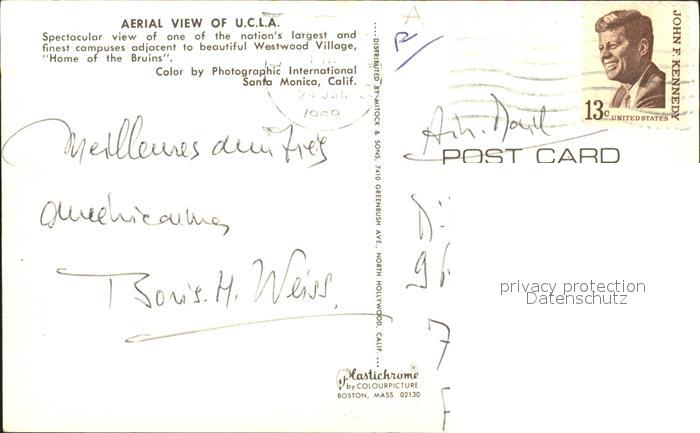 AERIAL VIEW OF U.C.L.A.
Spectacular view of one of the nation's largest and
finest campuses adjacent to beautiful Westwood Village,
"Home of the Bruins".
Color by Photographic International
Santa Monica, Calif.
1969
Meilleures amitiés
américaines
Boris. H. Weiss.
DISTRIBUTED BY MITOCK & SONS, 7410 GREENBUSH AVE., NORTH HOLLYWOOD, CALIF.
Plastichrome®
by COLOURPICTURE
BOSTON, MASS. 02130
JOHN F. KENNEDY
13c UNITED STATES
Air Mail
POST CARD
privacy protection
Datenschutz